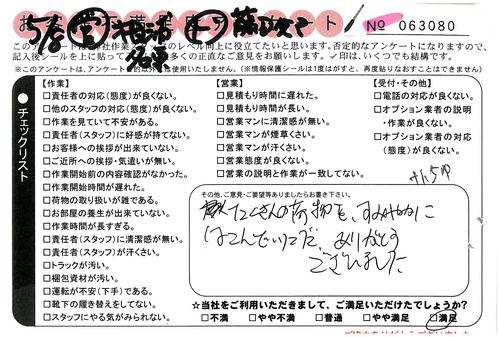 アンケート
No 063080
このアンケートは
作業スタッフのレベル向上に役立てたいと思います。否定的なアンケートになりますので、
記入後シールを上に貼って
多くの正直なご意見をお願いします。✓印は、いくつでも結構です。
※このアンケートは、アンケート
的以外使用いたしません。(※情報保護シールは1度はがすと、再度貼りなおすことはできません)
チェックリスト
【作業】
□責任者の対応(態度)が良くない。
□他のスタッフの対応(態度)が良くない。
□作業を見ていて不安がある。
□責任者(スタッフ)に好感が持てない。
□お客様への挨拶が出来ていない。
□ご近所への挨拶・気遣いが無い。
□作業開始前の内容確認がなかった。
□作業開始時間が遅れた。
□荷物の取り扱いが雑である。
□お部屋の養生が出来ていない。
□作業時間が長すぎる。
□責任者(スタッフ)に清潔感が無い。
□責任者(スタッフ)が汗くさい。
□トラックが汚い。
□梱包資材が汚い。
□運転が不安(下手)である。
□靴下の履き替えをしてない。
□スタッフにやる気がみられない。
【営業】
□見積もり時間に遅れた。
□見積もり時間が長い。
□営業マンに清潔感が無い。
□営業マンが煙草くさい。
□営業マンが汗くさい。
□営業態度が良くない。
□営業の説明と作業が一致してない。
【受付・その他】
□電話の対応が良くない。
□オプション業者の説明
・作業が良くない。
□オプション業者の対応
(態度)が良くない。
その他、ご意見・ご要望等ありましたらお書き下さい。
たくさんの荷物を、すみやかに
はこんでいただき、ありがとう
ございました
☆当社をご利用いただきまして、ご満足いただけたでしょうか?
□不満 □やや不満 □普通 □やや満足 □満足